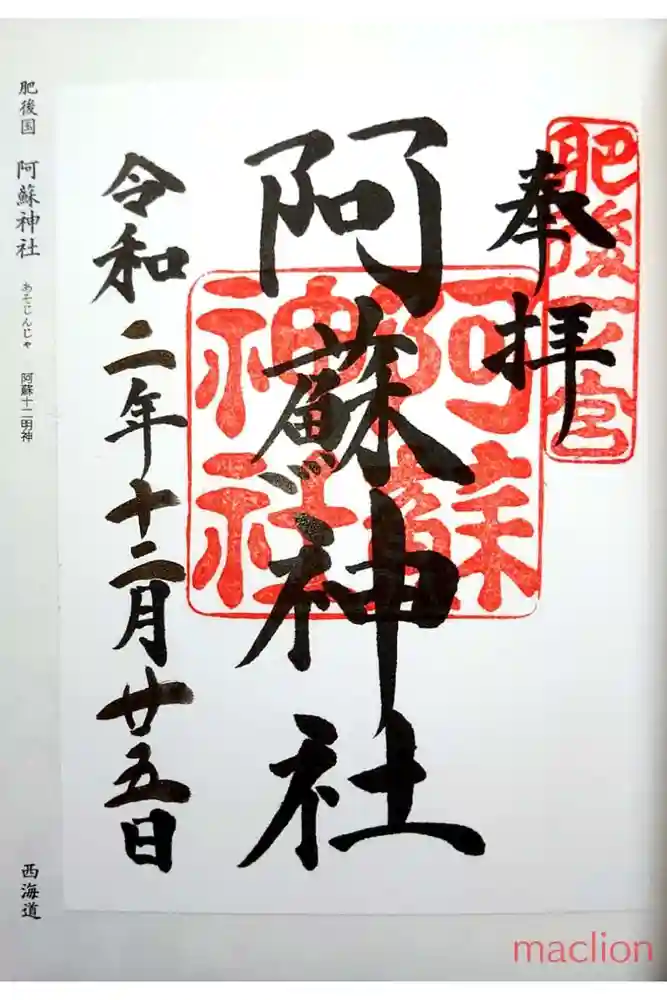 肥後一宮
奉拝
阿蘇神社
阿蘇神社
令和二年十二月廿五日
肥後国 阿蘇神社 あそじんじゃ 阿蘇十二明神 西海道
maclion